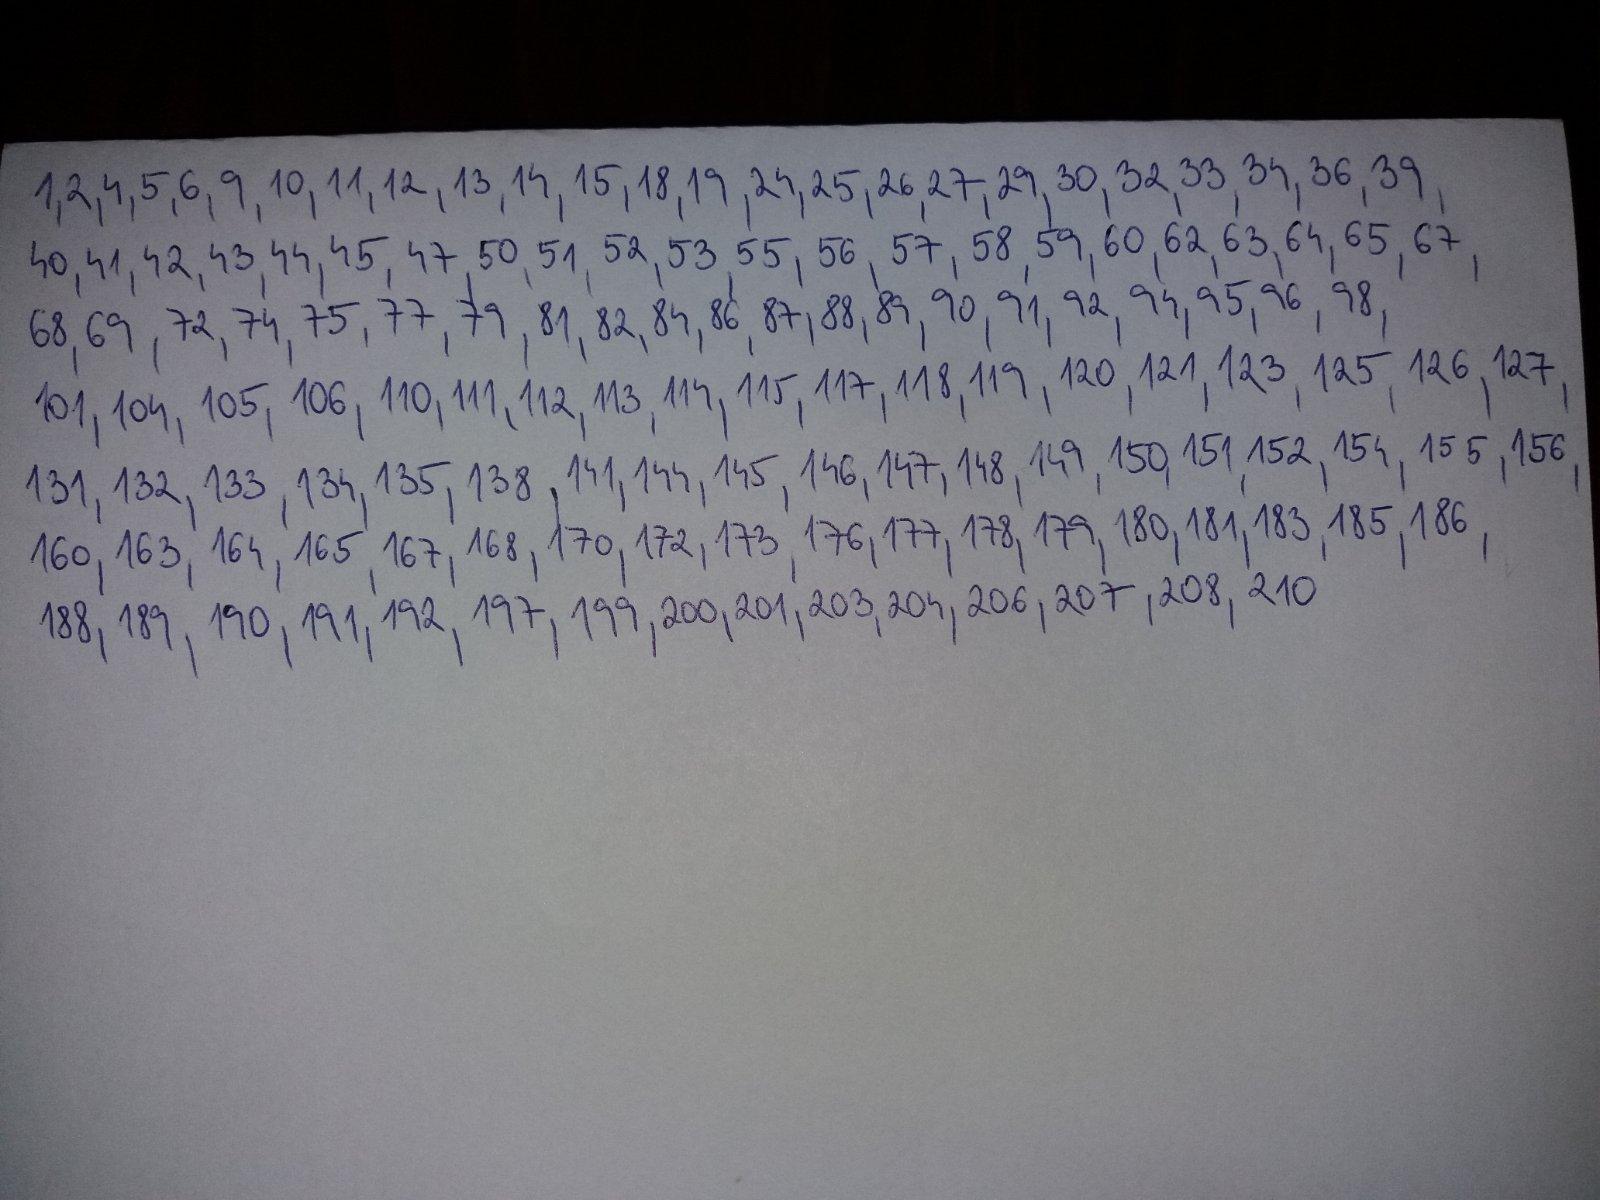 1, 2, 4, 5, 6, 9, 10, 11, 12, 13, 14, 15, 18, 19, 24, 25, 26, 27, 29, 30, 32, 33, 34, 36, 39,
40, 41, 42, 43, 44, 45, 47, 50, 51, 52, 53, 55, 56, 57, 58, 59, 60, 62, 63, 64, 65, 67,
68, 69, 72, 74, 75, 77, 79, 81, 82, 84, 86, 87, 88, 89, 90, 91, 92, 94, 95, 96, 98,
101, 104, 105, 106, 110, 111, 112, 113, 114, 115, 117, 118, 119, 120, 121, 123, 125, 126, 127,
131, 132, 133, 134, 135, 138, 141, 144, 145, 146, 147, 148, 149, 150, 151, 152, 154, 155, 156,
160, 163, 164, 165, 167, 168, 170, 172, 173, 176, 177, 178, 179, 180, 181, 183, 185, 186,
188, 189, 190, 191, 192, 197, 199, 200, 201, 203, 204, 206, 207, 208, 210